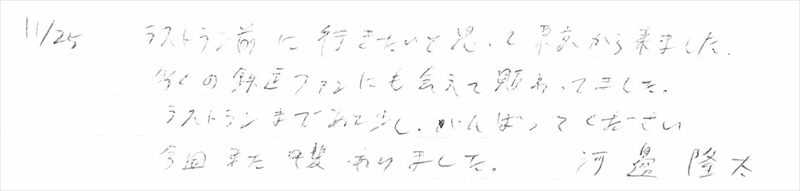 11/25 ラストラン前に行きたいと思って東京から来ました。
多くの鉄道ファンにも会えて賑わってました。
ラストランまであと少し、がんばってください
今回また わりました。 河邉隆太